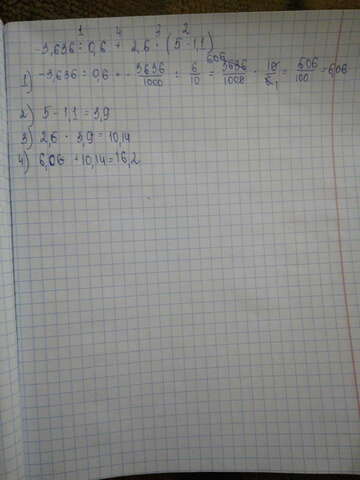 1 4 3 2
-3,636 : 0,6 + 2,6 · (5 - 1,1)
1) -3,636 : 0,6 = - 3636/1000 : 6/10 = 3636/1000 · 10/6 = 606/100 = 6,06
606 1
2) 5 - 1,1 = 3,9
3) 2,6 · 3,9 = 10,14
4) 6,06 + 10,14 = 16,2